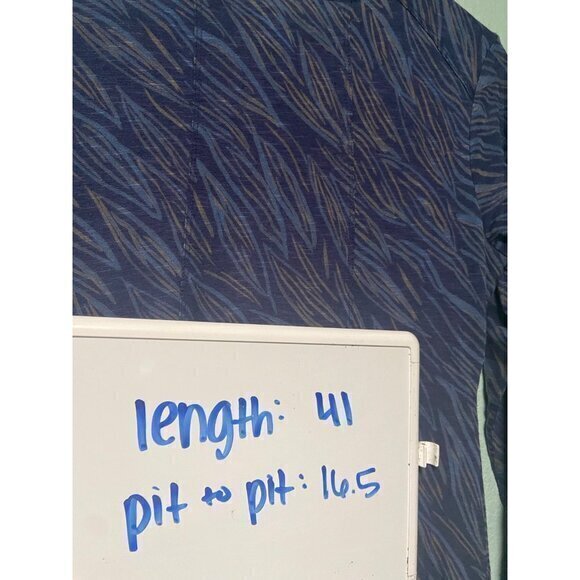 length: 41
pit to pit: 16.5